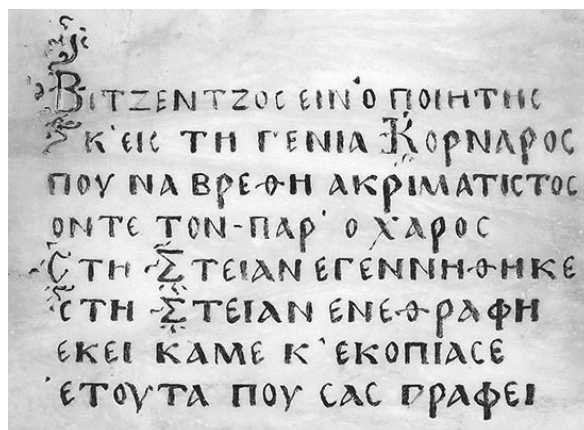 ΒΙΤΖΕΝΤΖΟC ΕΙΝ'Ο ΠΟΙΗΤΗC
Κ'ΕΙC ΤΗ ΓΕΝΙΑ ΚΟΡΝΑΡΟC
ΠΟΥ ΝΑ ΒΡΕΘΗ ΑΚΡΙΜΑΤΙCΤΟC
ΟΝΤΕ ΤΟΝ-ΠΑΡ' Ο ΧΑΡΟC
CΤΗ ΣΤΕΙΑΝ ΕΓΕΝΝΗΘΗΚΕ
CΤΗ ΣΤΕΙΑΝ ΕΝΕΘΡΑΦΗ
ΕΚΕΙ ΚΑΜΕ Κ'ΕΚΟΠΙΑCΕ
ΕΤΟΥΤΑ ΠΟΥ CΑC ΓΡΑΦΕΙ